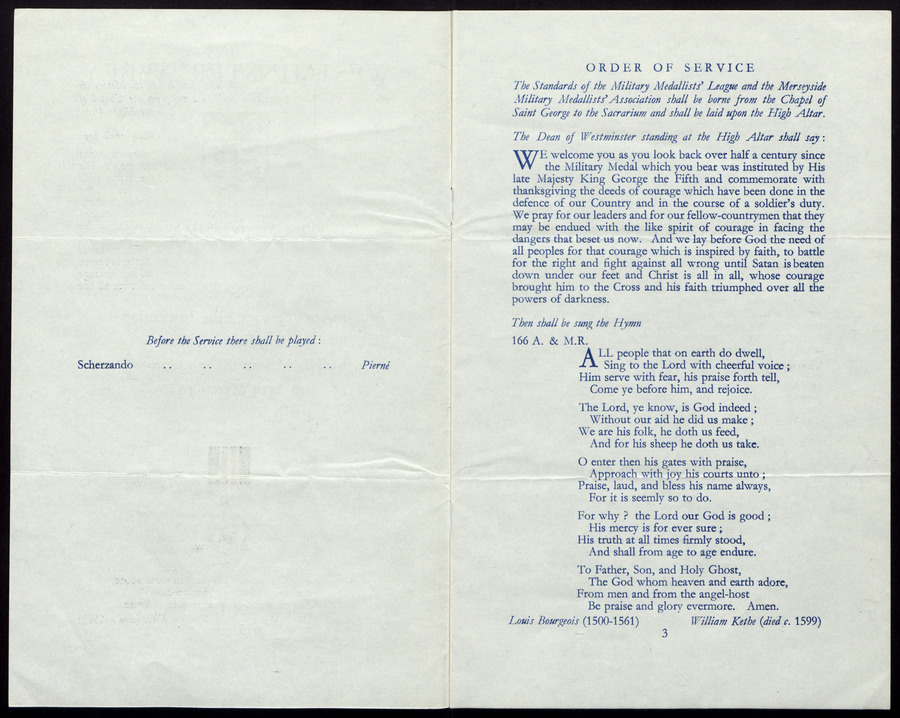 Before the Service there shall be played :
Scherzando .. .. .. .. .. Pierné
ORDER OF SERVICE
The Standards of the Military Medallists' League and the Merseyside
Military Medallists' Association shall be borne from the Chapel of
Saint George to the Sacrarium and shall be laid upon the High Altar.
The Dean of Westminster standing at the High Altar shall say :
WE welcome you as you look back over half a century since
the Military Medal which you bear was instituted by His
late Majesty King George the Fifth and commemorate with
thanksgiving the deeds of courage which have been done in the
defence of our Country and in the course of a soldier's duty.
We pray for our leaders and for our fellow-countrymen that they
may be endued with the like spirit of courage in facing the
dangers that beset us now. And we lay before God the need of
all peoples for that courage which is inspired by faith, to battle
for the right and fight against all wrong until Satan is beaten
down under our feet and Christ is all in all, whose courage
brought him to the Cross and his faith triumphed over all the
powers of darkness.
Then shall be sung the Hymn
166 A. & M.R.
ALL people that on earth do dwell,
Sing to the Lord with cheerful voice ;
Him serve with fear, his praise forth tell,
Come ye before him, and rejoice.
The Lord, ye know, is God indeed ;
Without our aid he did us make ;
We are his folk, he doth us feed,
And for his sheep he doth us take.
O enter then his gates with praise,
Approach with joy his courts unto ;
Praise, laud, and bless his name always,
For it is seemly so to do.
For why ? the Lord our God is good ;
His mercy is for ever sure ;
His truth at all times firmly stood,
And shall from age to age endure.
To Father, Son, and Holy Ghost,
The God whom heaven and earth adore,
From men and from the angel-host
Be praise and glory evermore. Amen.
Louis Bourgeois (1500-1561) William Kethe (died c. 1599)
3